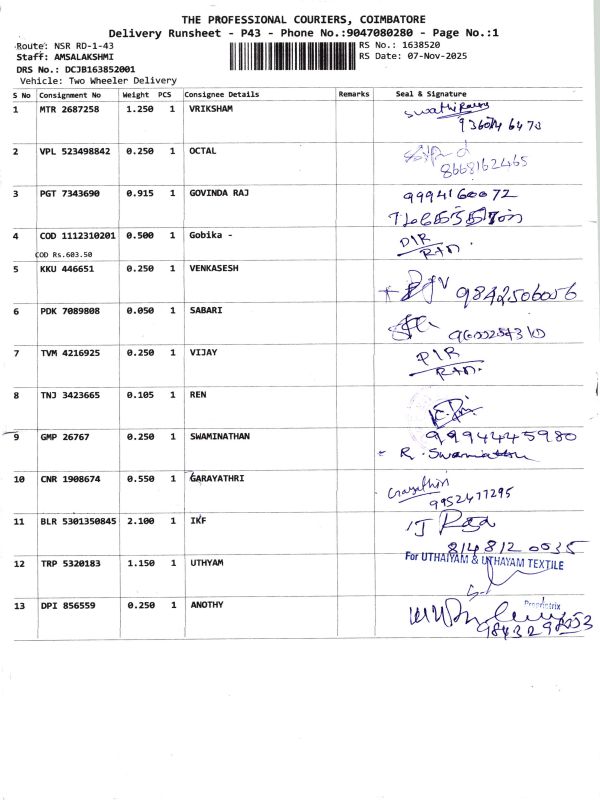 THE PROFESSIONAL COURIERS, COIMBATORE
Delivery Runsheet - P43 - Phone No.:9047080280 - Page No.:1
Route: NSR RD-1-43
RS No.: 1638520
Staff: AMSALAKSHMI
RS Date: 07-Nov-2025
DRS No.: DCJB163852001
Vehicle: Two Wheeler Delivery
S No Consignment No Weight PCS Consignee Details Remarks Seal & Signature
1 MTR 2687258 1.250 1 VRIKSHAM
2 VPL 523498842 0.250 1 OCTAL
8668162465
3 PGT 7343690 0.915 1 GOVINDA RAJ 9994160072
4 COD 1112310201 0.500 1 Gobika -
COD Rs.603.50
5 KKU 446651 0.250 1 VENKASESH
9842506056
6 PDK 7089808 0.050 1 SABARI
7 TVM 4216925 0.250 1 VIJAY
8 TNJ 3423665 0.105 1 REN
9 GMP 26767 0.250 1 SWAMINATHAN 9994445980
R. Swaminathan
10 CNR 1908674 0.550 1 GARAYATHRI
Gayathiri
9952477295
11 BLR 5301350845 2.100 1 IKF
8148120035
12 TRP 5320183 1.150 1 UTHYAM
For UTHAIYAM & UTHAYAM TEXTILE
Proprietrix
13 DPI 856559 0.250 1 ANOTHY